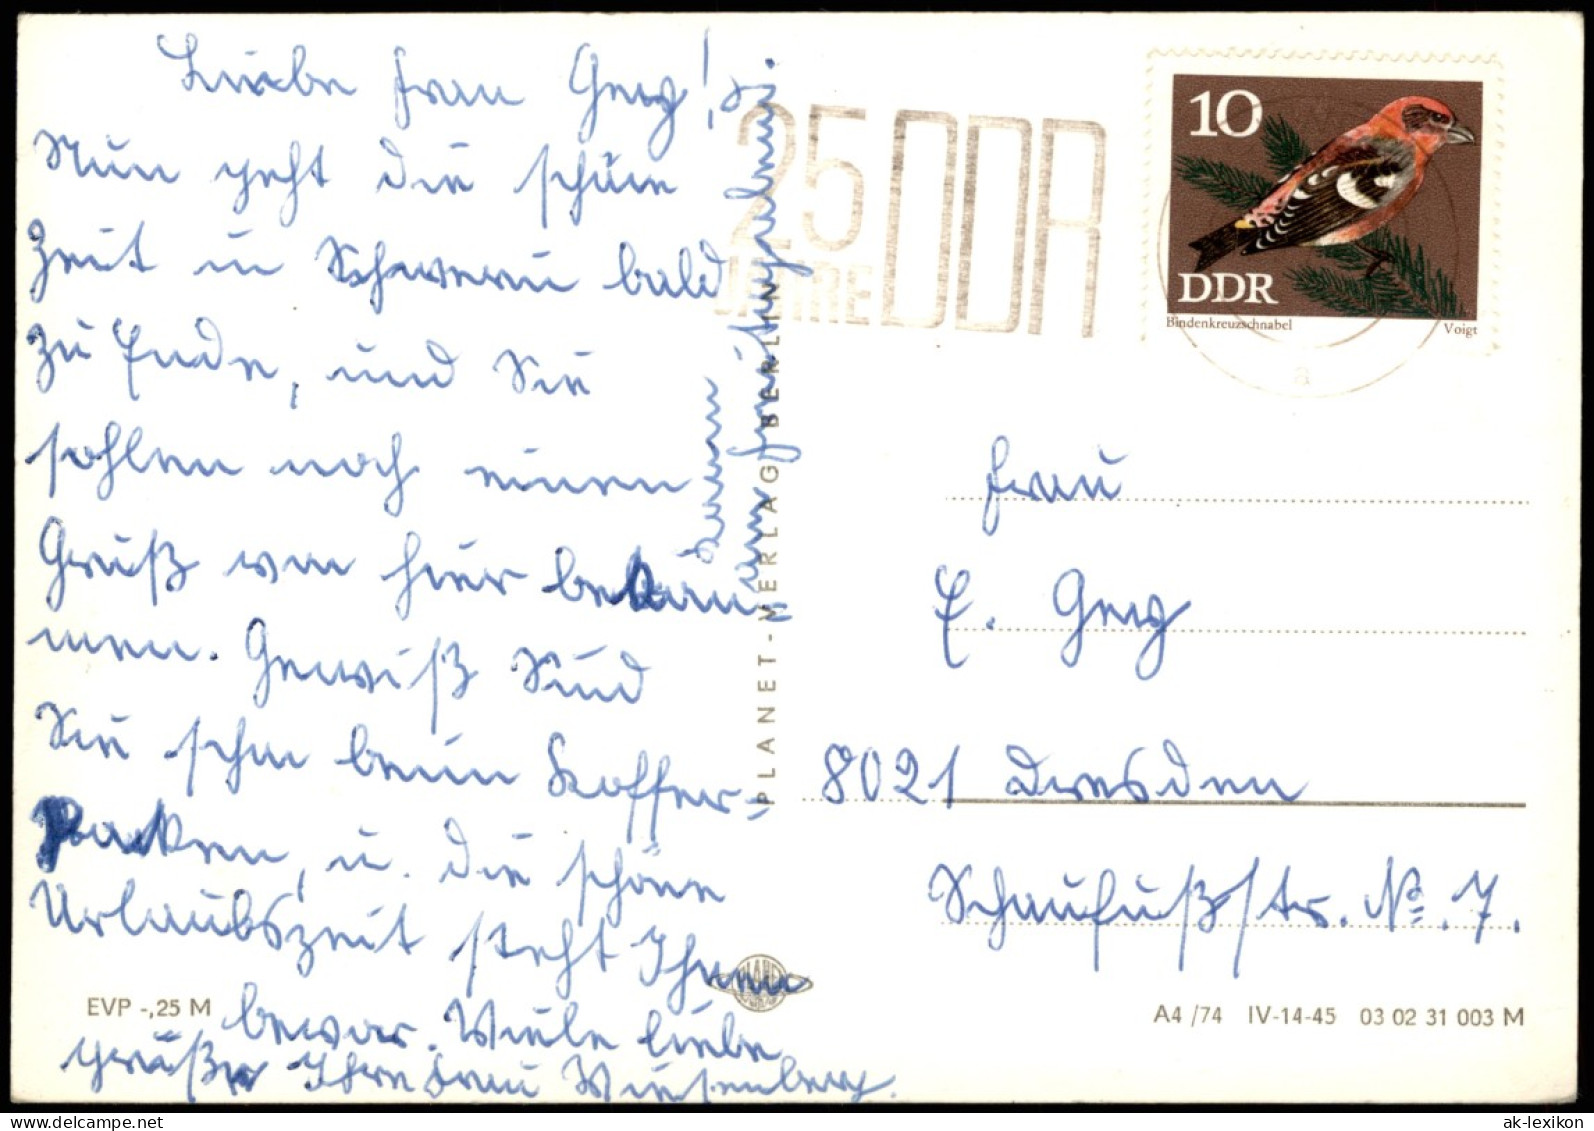 Liebe Frau Gey!
Nun geht die schöne
Zeit in Schwerin bald
zu Ende, und Sie
sohlen noch einen
Gruß von hier bekom=
men. Gewiß Sind
Sie schon beim Koffer=
Packen, u. die schöne
Urlaubszeit steht Ihnen
bevor. Viele liebe
grüße Ihre Frau Wiesenberg.
25
JAHRE
DDR
10
DDR
Bindenkreuzschnabel
Voigt
a
PLANET-VERLAG BERLIN
Frau
E. Gey
8021 Dresden
Schaufußstr. № 7.
EVP -,25 M
A4 /74 IV-14-45 03 02 31 003 M
ak-lexikon